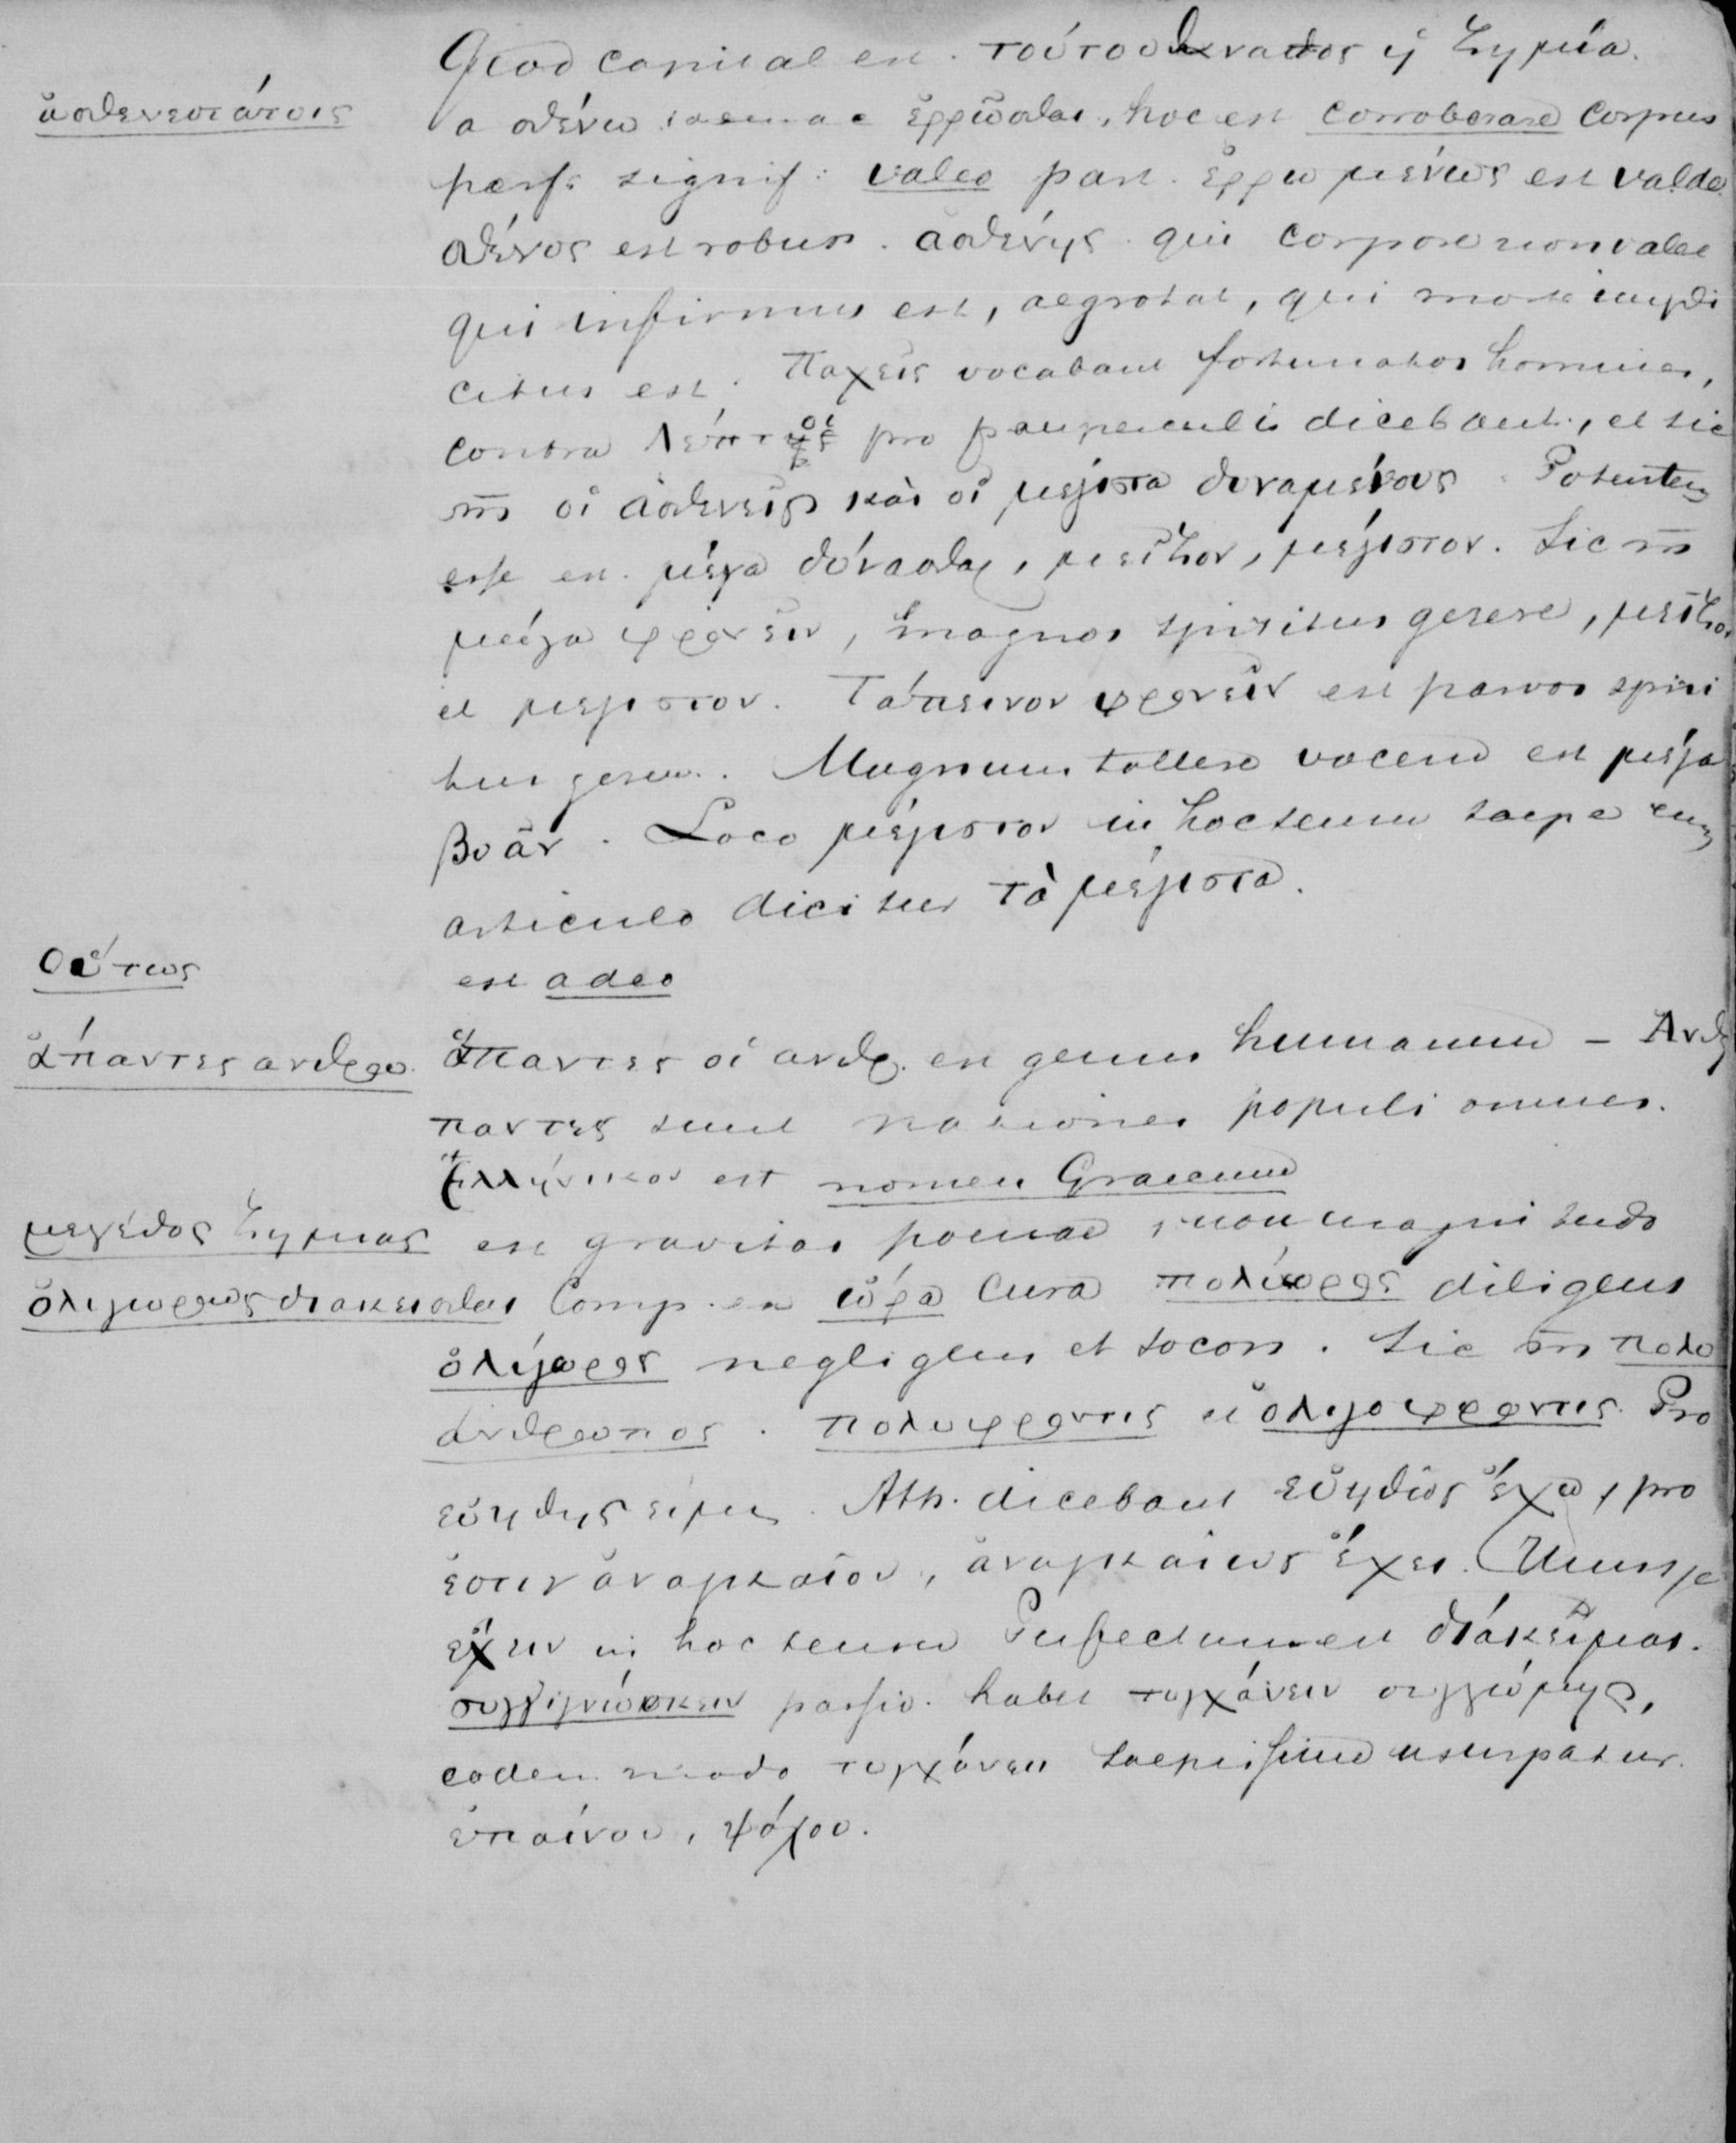 Quod capital est. τούτου θάνατος ἡ ζημία.
ἀσθενεστάτοις
a σθένω ἐρρῶσθαι, hoc est corroborare corpus
perf. signif: valeo part. ἐρρωμένως est valde
σθένος est robur. ἀσθένης qui corpore non valet
qui infirmus est, aegrotat, qui morbo impli
citus est. παχεῖς vocabant fortunatos homines,
contra λέπτοι pro pauperculis dicebant, et sic
οἱ ἀσθενεῖς καὶ οἱ μέγιστα δυναμένους. Potentem
esse est μέγα δύνασθαι, μεῖζον, μέγιστον. Sic
μέγα φρονεῖν, magnos spiritus gerere, μεῖζον
et μεγιστον. Τάπεινον φρονεῖν est parvos spiri
tus gerere. Magnum tollere vocem est μέγα
βοᾶν. Loco μέγιστον in hoc sensu saepe cum
articulo dicitur τὰ μέγιστα.
οὕτως
est adeo
ἅπαντες ανθρω.
ἅπαντες οἱ ανθρ. est genus humanum – Ανθρ
παντες sunt nationes populi omnes.
Ἑλλήνικον est nomen Graecum
μεγέθος ζημιας est gravitas poenae, non magnitudo
ὀλιγωρως διακεισθαι Comp. ex ὤρα cura πολύωρος diligens
ὀλίγωρος negligens et socors. Sic πολυ
άνθρωπος. πολυφροντις et ὀλιγοφροντις. Pro
εὐηθης εἰμι Ath. dicebant εὐηθῶς ἔχω, pro
ἐστιν ἀναγκαῖον, ἀναγκαίως ἔχει.
ἔχειν in hoc sensu Perfectum est διάκειμαι.
συγγιγνώσκειν passiv. habet τυγχάνειν συγγνώμης,
eodem modo τυγχάνειν saepissime usurpatur.
ἐπαίνου, ψόγου.